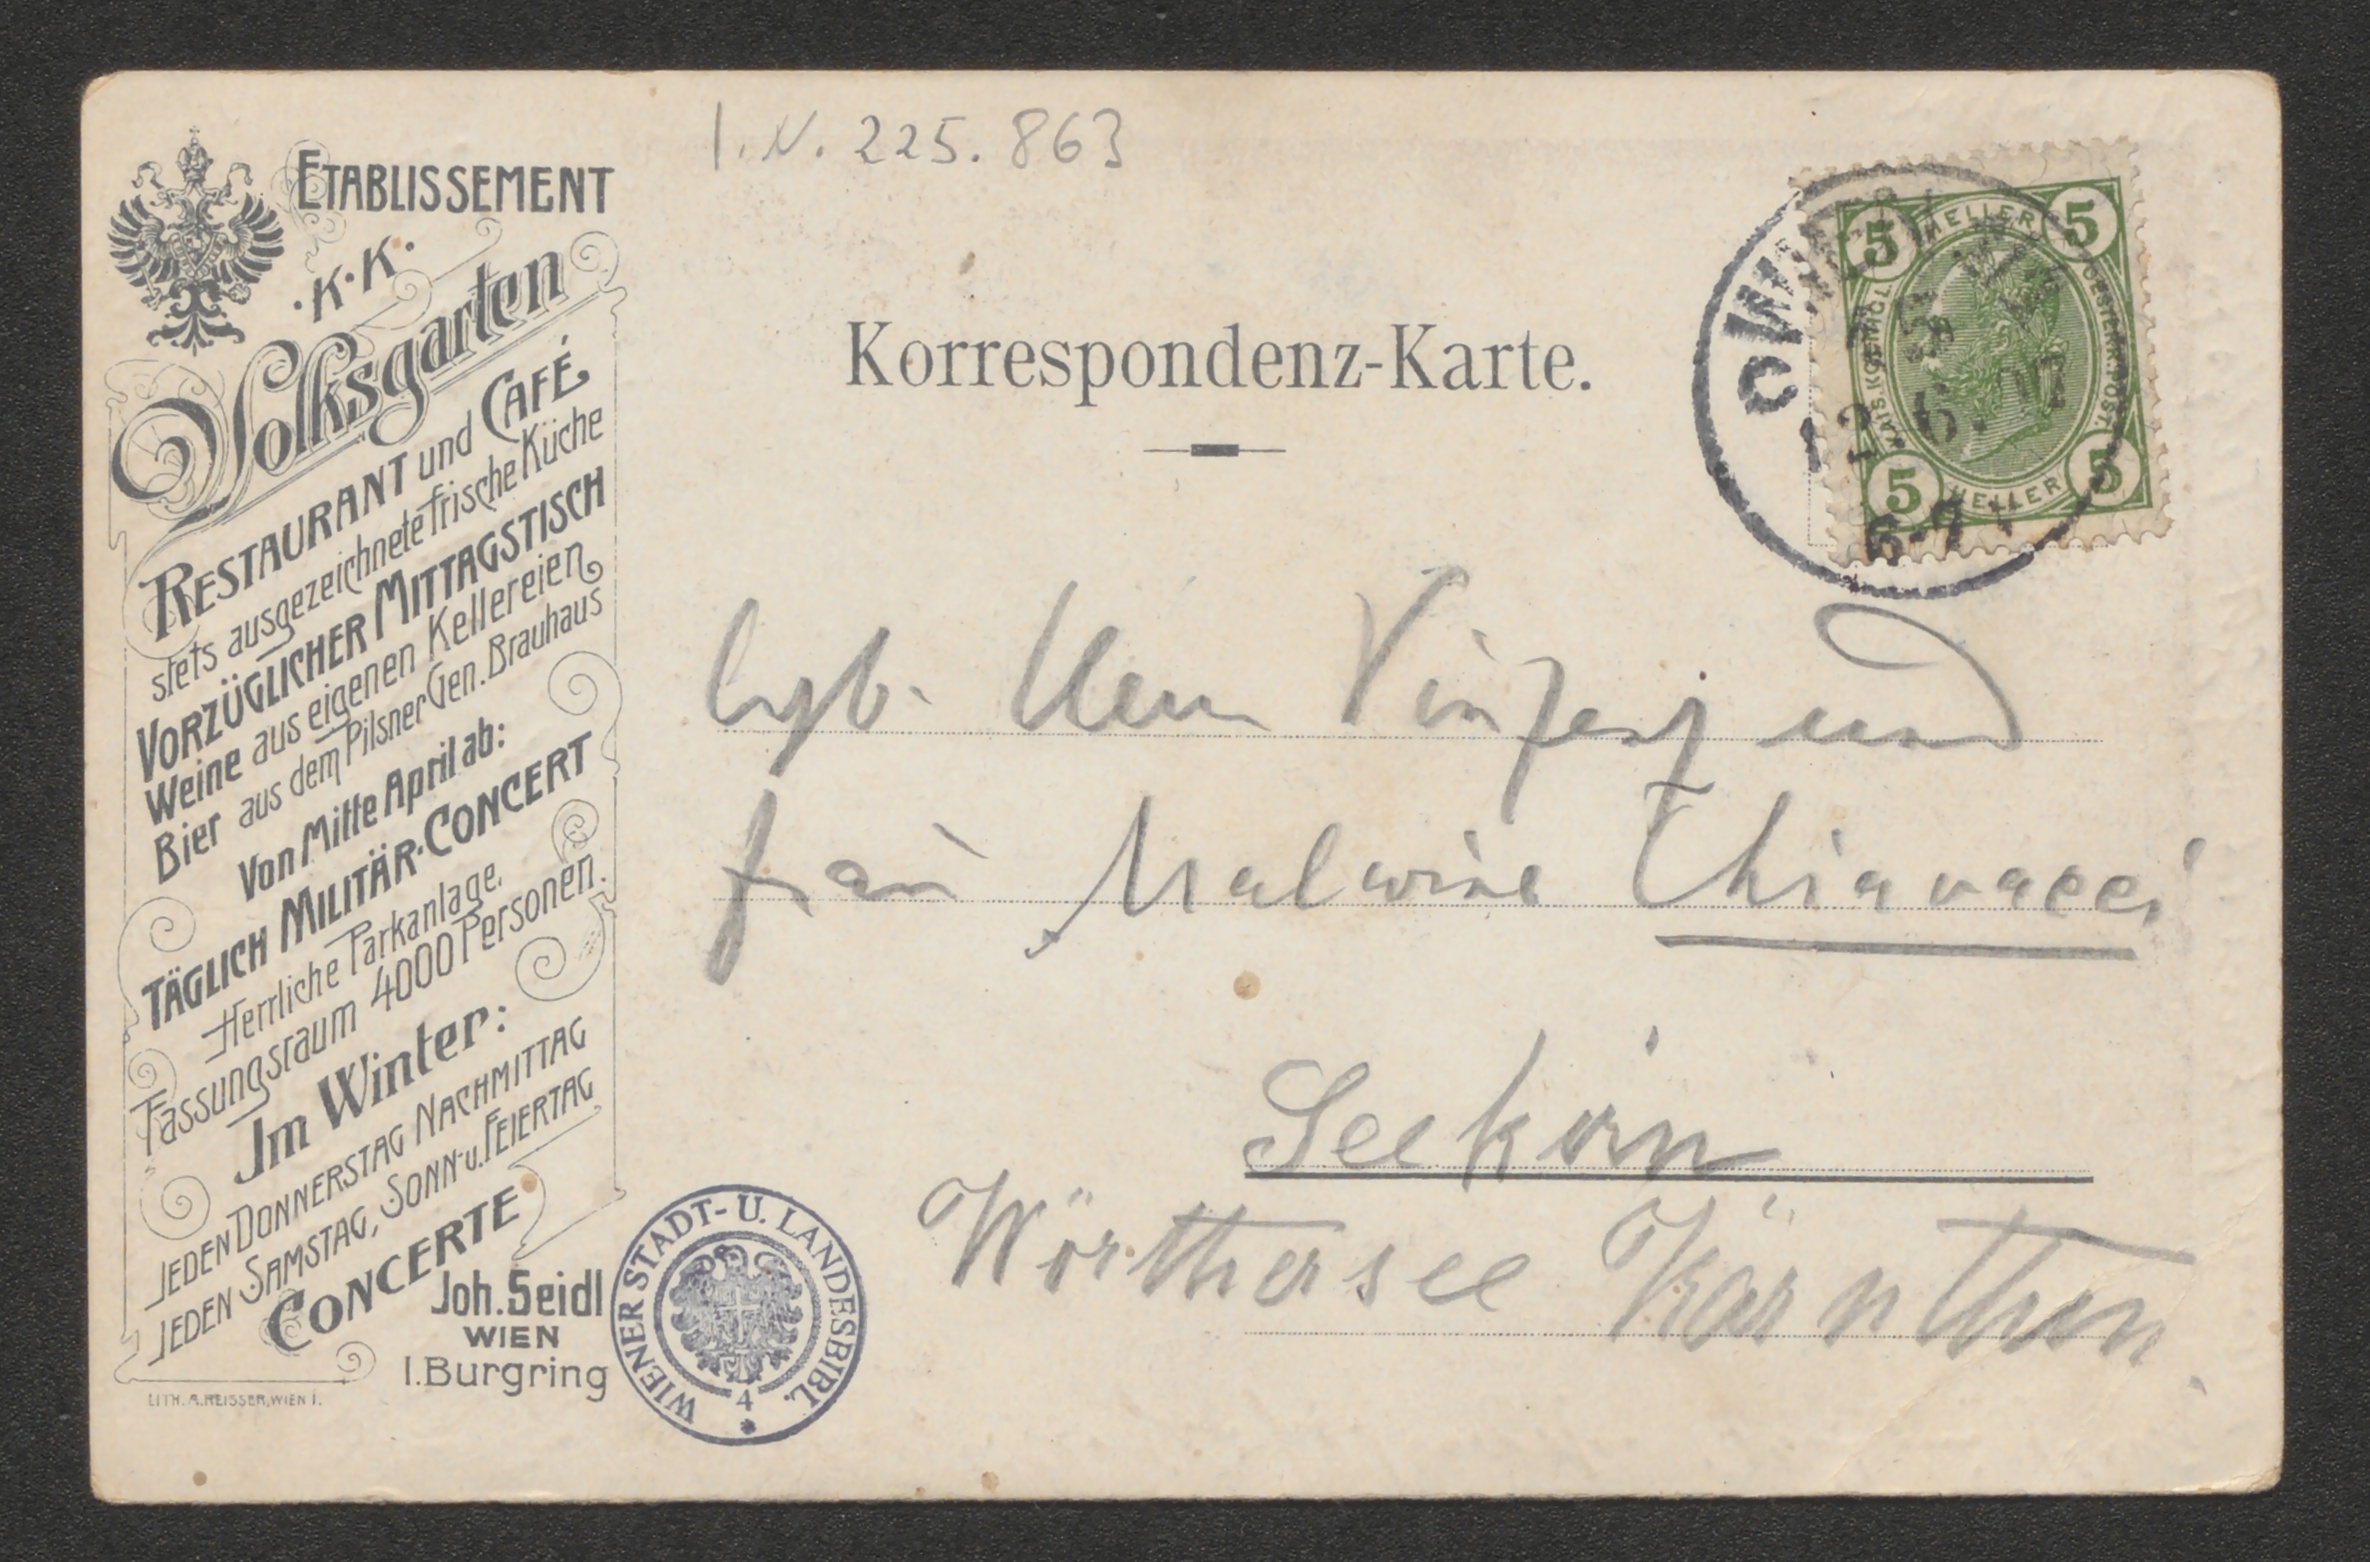 I.N. 225.863
ETABLISSEMENT
·K·K·
Volksgarten
RESTAURANT und CAFÉ
stets ausgezeichnete frische Küche
VORZÜGLICHER MITTAGSTISCH
Weine aus eigenen Kellereien
Bier aus dem Pilsner Gen. Brauhaus
Von Mitte April ab:
TÄGLICH MILITÄR-CONCERT
Herrliche Parkanlage,
Fassungsraum 4000 Personen.
Im Winter:
JEDEN DONNERSTAG NACHMITTAG
JEDEN SAMSTAG, SONN- u. FEIERTAG
CONCERTE
Joh. Seidl
WIEN
I. Burgring
LITH. A. REISSER, WIEN I.
Korrespondenz-Karte.
5 HELLER 5
KAIS. KOENIGL. OESTERR. POST.
5 HELLER 5
6-7
Herrn Vinzenz und
Frau Malwine Chiavacci
Seekirn
Wörthersee Kärnthen.
WIENER STADT- U. LANDESBIBL.
4